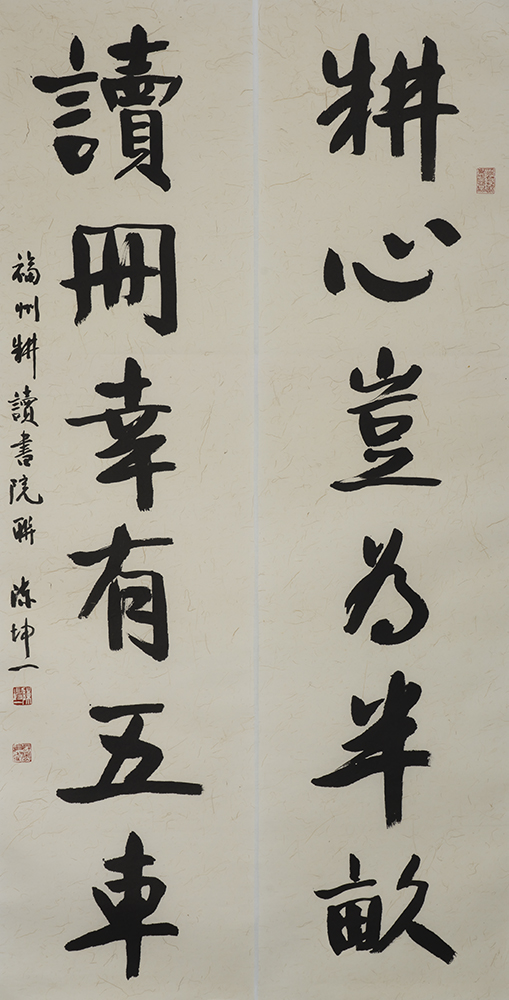 耕心豈為半畝
讀冊幸有五車
福州耕讀書院聯 陳坤一